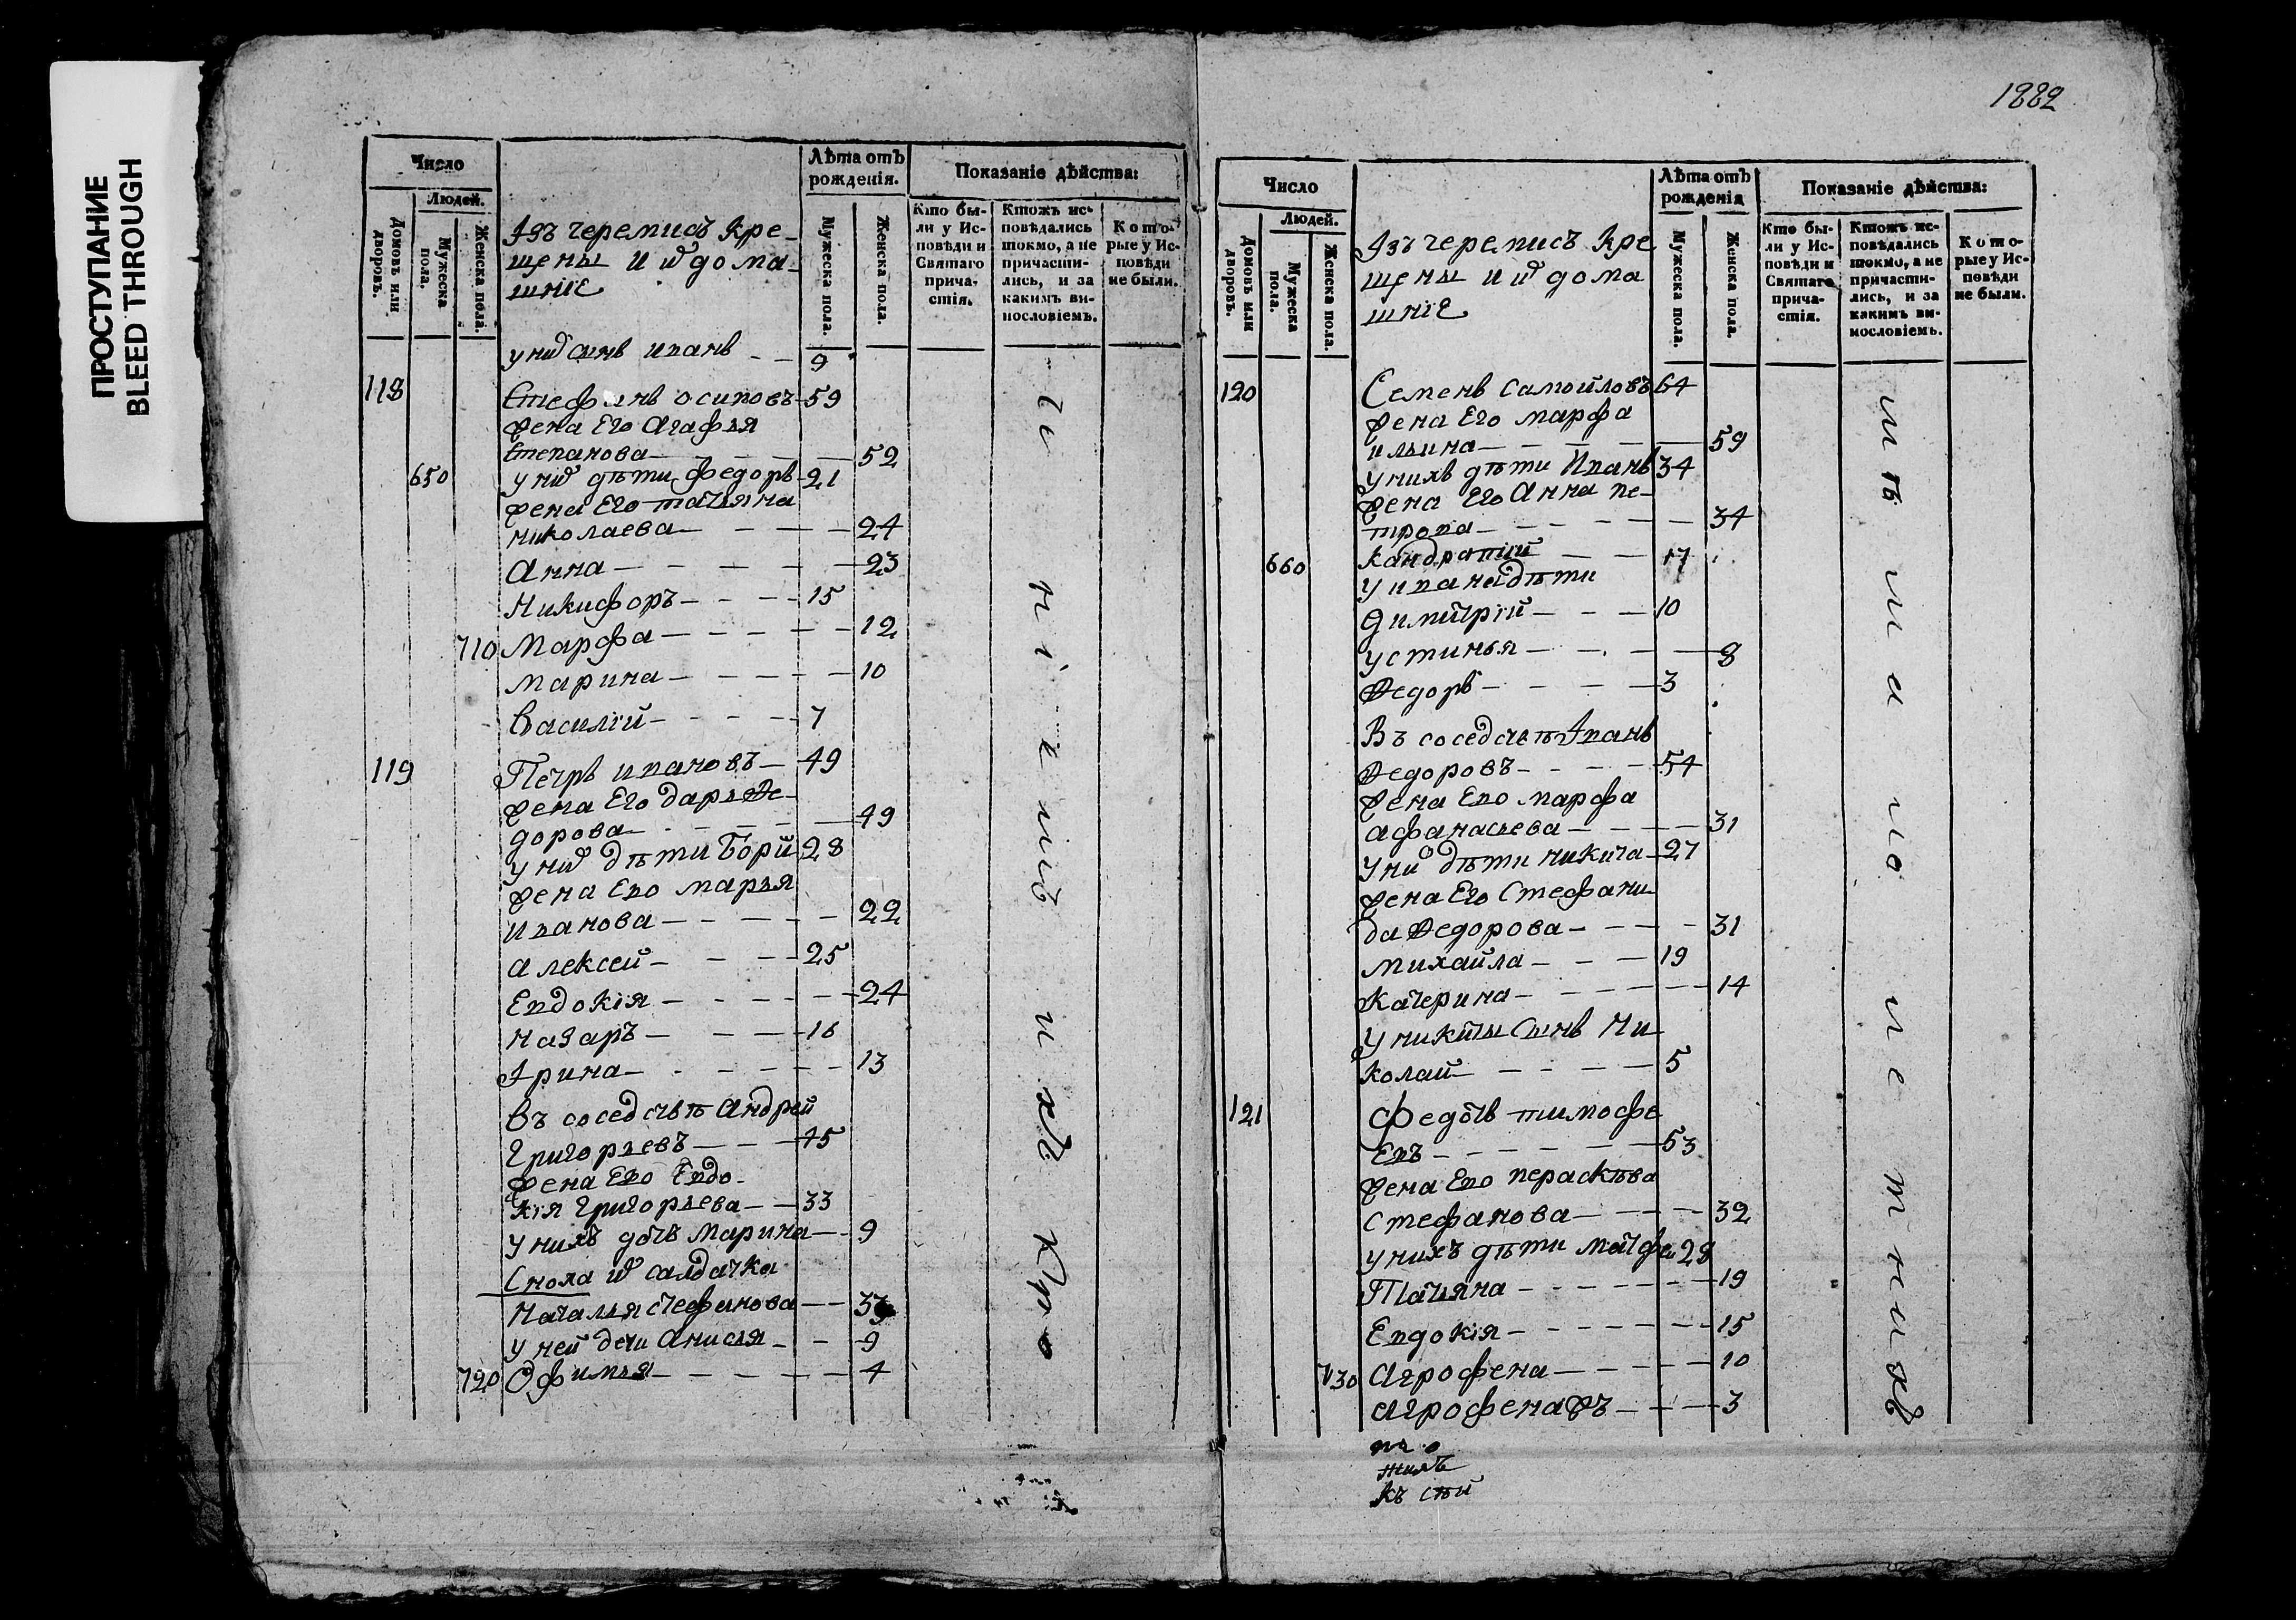 ПРОСТУПАНИЕ
BLEED THROUGH
1882
Число
Людей.
Домовъ или дворовъ.
Мужеска пола.
Женска пола.
Изъ черемисъ кре-
щены и ихъ дома-
шнiе
Лѣта отъ рожденія.
Мужеска пола.
Женска пола.
Показаніе дѣйства:
Кто бы-
ли у Ис-
повѣди и
Святаго
прича-
стія.
Ктожъ ис-
повѣдались
токмо, а не
причасти-
лись, и за
какимъ ви-
нословіемъ.
Кото-
рые у Ис-
повѣди
не были.
у них сынъ иванъ - - 9
118 Стефанъ осиповъ 59
жена Его Агафья
Степанова 52
650 у них дѣти федоръ 21
жена Его татьяна
николаева 24
Анна 23
Никифоръ 15
710 Марфа 12
марина 10
василiй 7
119 Петръ ивановъ 49
жена Его дарья Фе-
дорова 49
у них дѣти Борис 28
жена Ево марья
иванова 22
алексей 25
Евдокiя 24
назаръ 16
Ирина 13
въ соседствѣ андрей
Григорьевъ 45
жена Ево Евдо-
кiя григорьева 33
у нихъ дочь марина 9
Сноха их салдатка
наталья стефанова
у ней дети Анисья 9
720 Офимья 4
Число
Людей.
Домовъ или дворовъ.
Мужеска пола.
Женска пола.
Изъ черемисъ кре
щены и их дома
шнiе
Лѣта отъ рожденія
Мужеска пола.
Женска пола.
Показаніе дѣйства:
Кто бы-
ли у Ис-
повѣди и
Святаго
прича-
стія.
Ктожъ ис-
повѣдались
токмо, а не
причасти-
лись, и за
какимъ ви-
нословіемъ.
Кото-
рые у Ис-
повѣди
не были.
120 Семенъ самойловъ 64
жена Его марфа
ильина 59
у нихъ дѣти Иванъ 34
жена Его Анна пе-
трова 34
660 кандратiй 17
у ивана дѣти
димитрiй 10
устинья 8
Федоръ 3
Въ соседствѣ Иванъ
Федоровъ 54
жена Ево марфа
афанасьева 31
у них дѣти никита 27
жена Его Стефани
да Федорова 31
михайла 19
Катерина 14
у никиты Сынъ Ни
колай 5
121 Федотъ тимофе
Евъ 53
жена Ево пераскѣва
стефанова 32
у нихъ дѣти матфеи 28
Татьяна 19
Евдокiя 15
730 Агрофена 10
агрофена жъ 3
къ сей